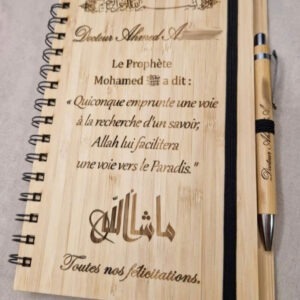 Docteur Ahmed A
Le Prophète
Mohamed ﷺ a dit :
« Quiconque emprunte une voie
à la recherche d'un savoir,
Allah lui facilitera
une voie vers le Paradis."
ما شاء الله
Toutes nos félicitations.
Docteur A